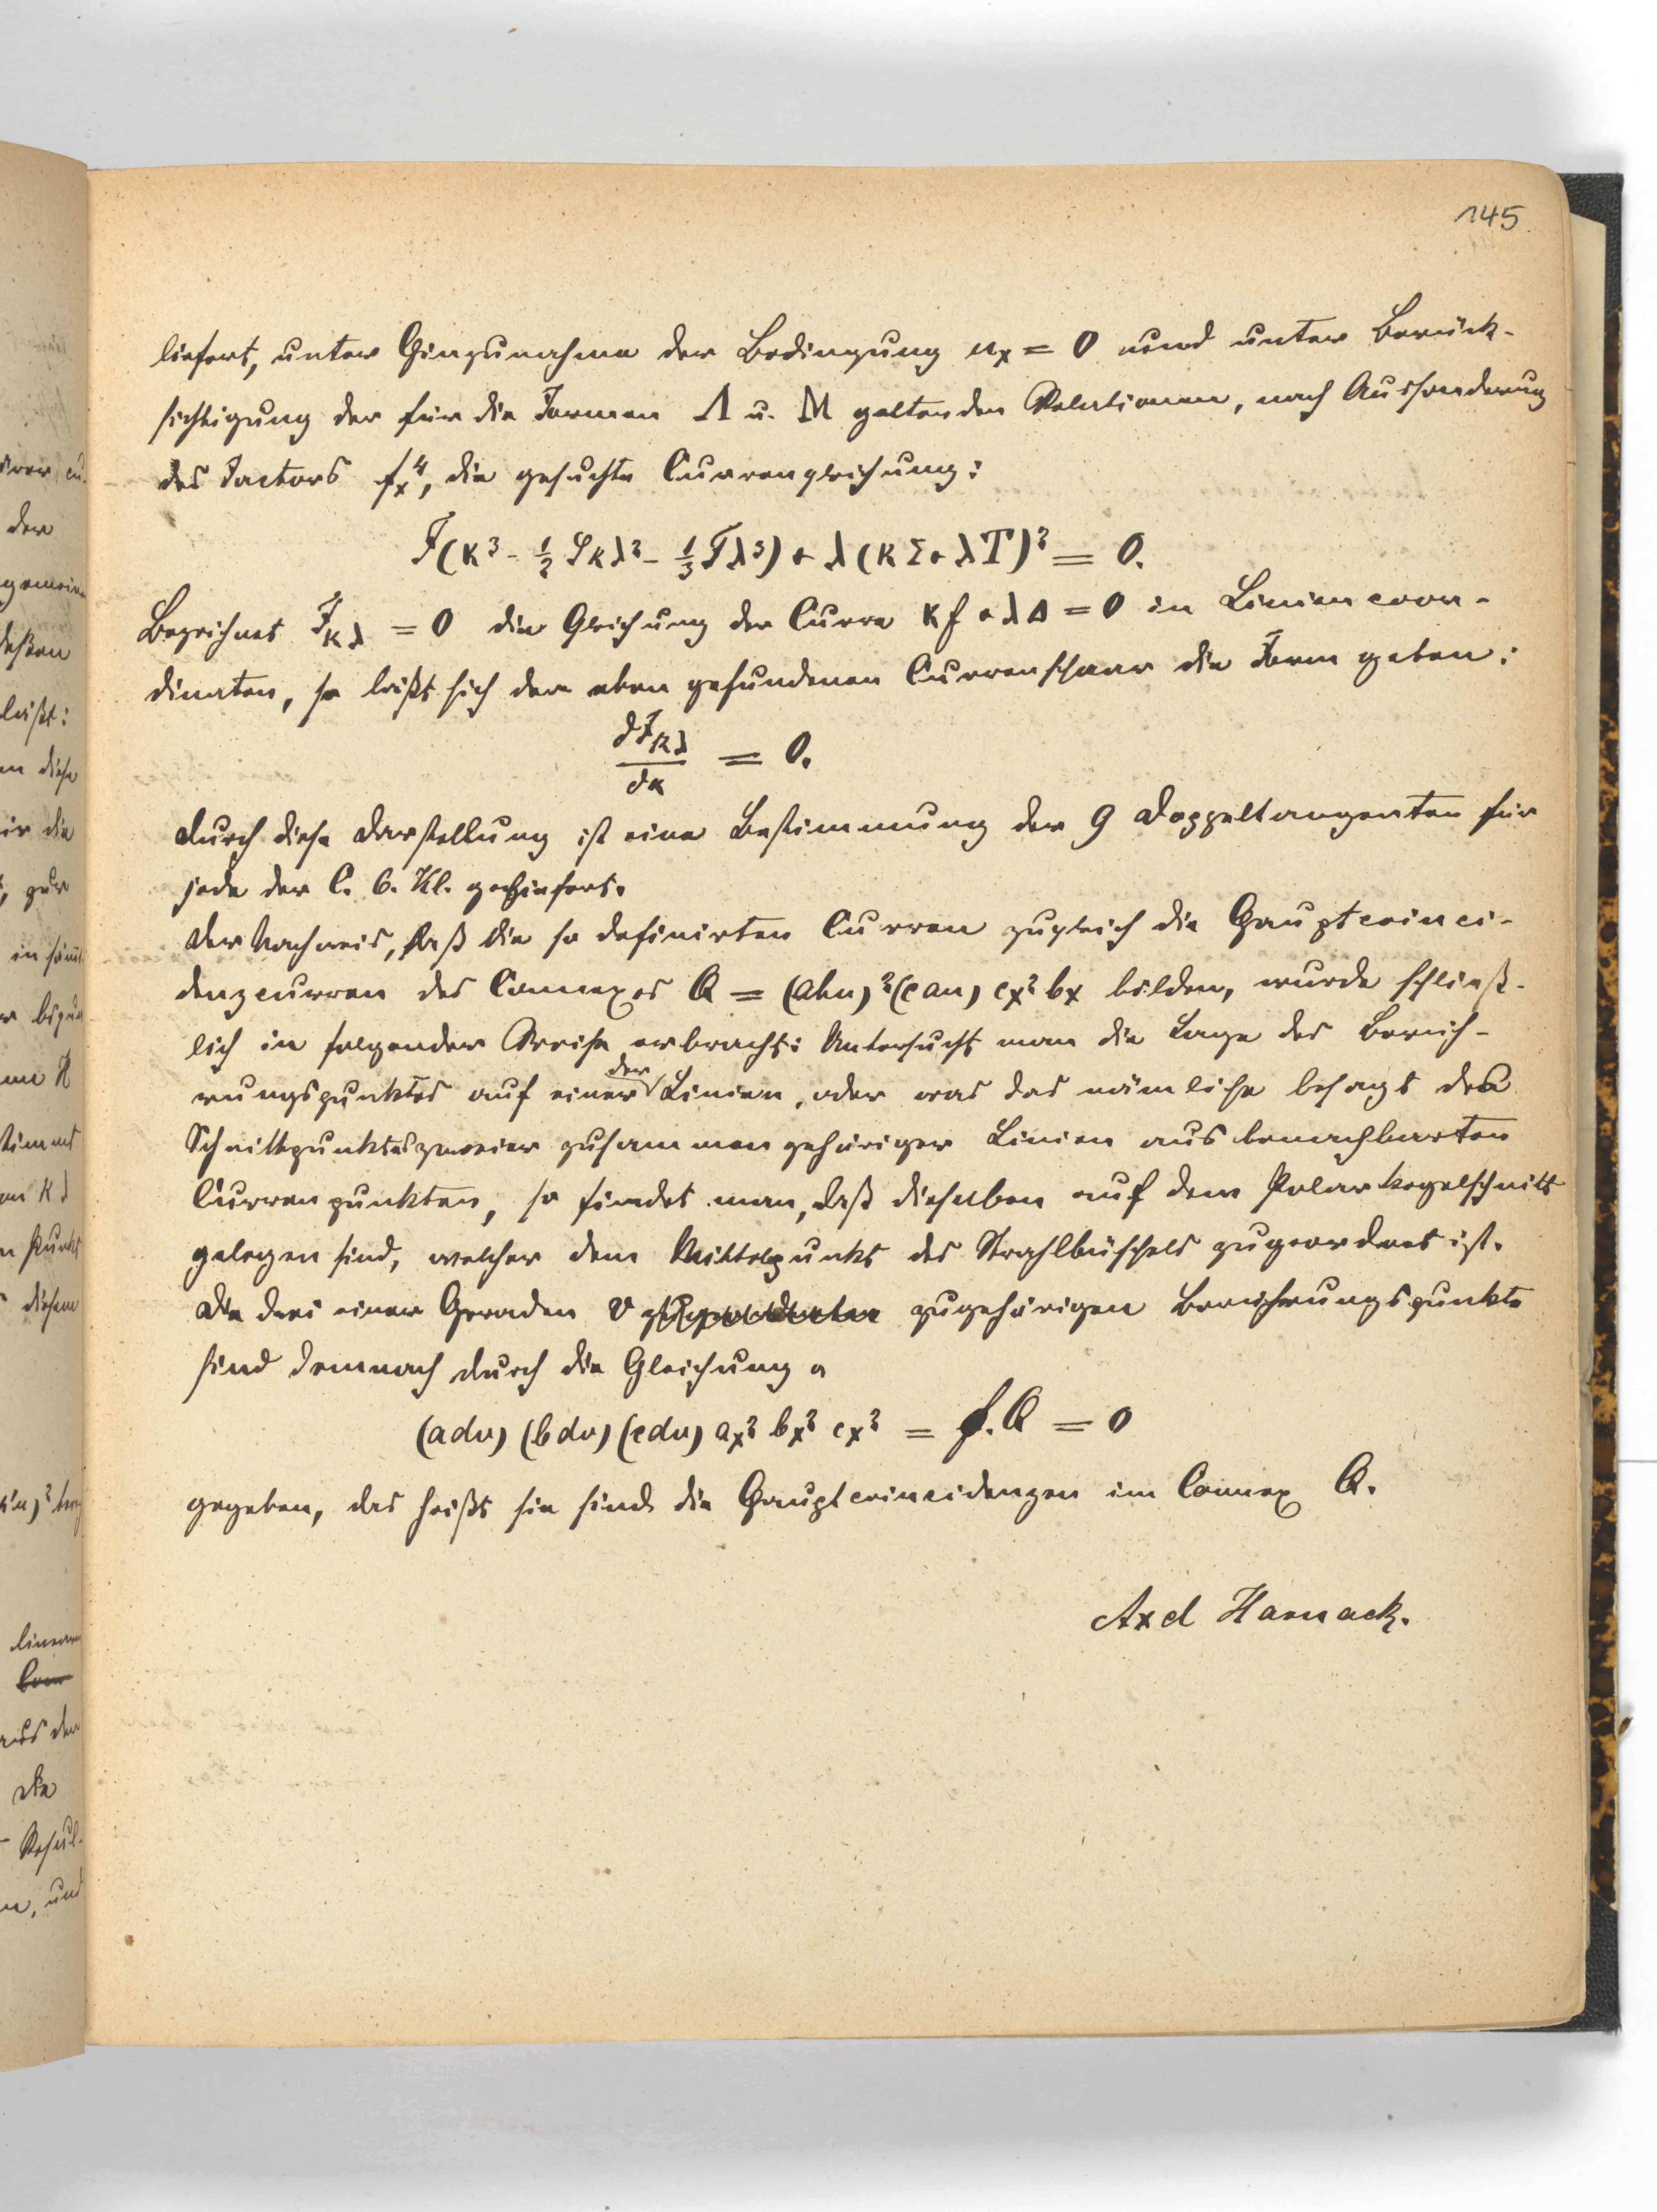 145.
liefert, unter Hinzunahme der Bedingung uₓ = 0 und unter Berück-
sichtigung der für die Formen Λ u. M geltenden Relationen, nach Aussonderung
des Factors fₓ⁴, die gesuchte Curvengleichung:
F(κ³ - ½ Sκλ² - ⅓ Tλ³) + λ(κΣ + λT)² = 0.
Bezeichnet F_κλ = 0 die Gleichung der Curve κf + λΔ = 0 in Liniencoor-
dinaten, so läßt sich der eben gefundenen Curvenschaar die Form geben:
∂F_κλ/∂κ = 0.
Durch diese Darstellung ist eine Bestimmung der 9 Doppeltangenten für
jede der C. 6. Kl. geliefert.
Der Nachweis, daß die so definirten Curven zugleich die Hauptcoinci-
denzcurven des Connexes Q = (abu)²(cau) cₓ² bₓ bilden, wurde schließ-
lich in folgender Weise erbracht: Untersucht man die Lage des Berüh-
rungspunktes auf einer der Linien, oder was das nämliche besagt des
Schnittpunktes zweier zusammengehöriger Linien aus benachbarten
Curvenpunkten, so findet man, daß dieselben auf dem Polarkegelschnitt
gelegen sind, welcher dem Mittelpunkt des Strahlbüschels zugeordnet ist.
Die drei einer Geraden v zugehörigen Berührungspunkte
sind demnach durch die Gleichung
(adv) (bdv) (cdv) aₓ² bₓ² cₓ² = f.Q = 0
gegeben, das heißt sie sind die Hauptcoincidenzen im Connex Q.
Axel Harnack.
der
lässt:
diese
die
diesem
linearen
aus der
Die
und